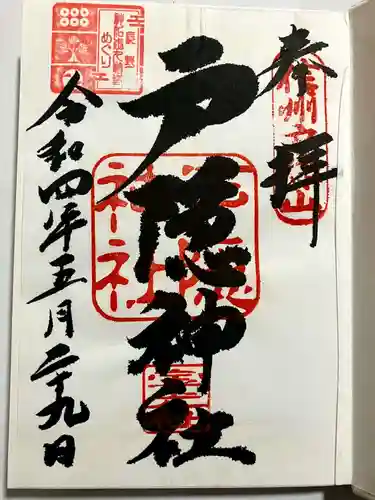 奉拝
戸隠神社
令和四年五月二十九日
長野
めぐり